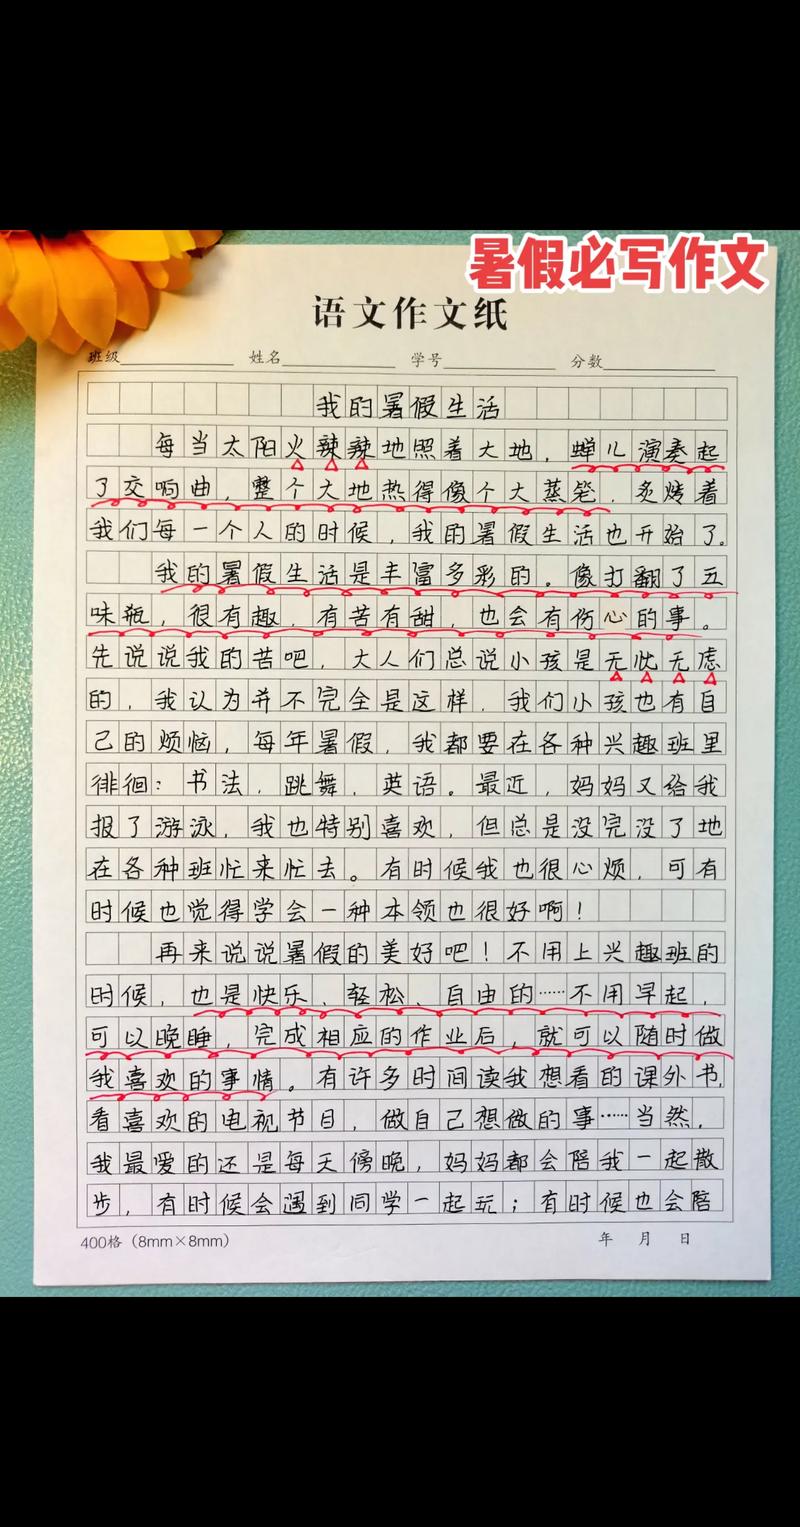 暑假必写作文
语文作文纸
班级 姓名 学号 分数
我的暑假生活
每当太阳火辣辣地照着大地，蝉儿演奏起
了交响曲，整个大地热得像个大蒸笼，炙烤着
我们每一个人的时候，我的暑假生活也开始了。
我的暑假生活是丰富多彩的。像打翻了五
味瓶，很有趣，有苦有甜，也会有伤心的事。
先说说我的苦吧，大人们总说小孩是无忧无虑
的，我认为并不完全是这样，我们小孩也有自
己的烦恼，每年暑假，我都要在各种兴趣班里
徘徊：书法，跳舞，英语。最近，妈妈又给我
报了游泳，我也特别喜欢，但总是没完没了地
在各种班忙来忙去。有时候我也很心烦，可有
时候也觉得学会一种本领也很好啊！
再来说说暑假的美好吧！不用上兴趣班的
时候，也是快乐、轻松、自由的……不用早起，
可以晚睡，完成相应的作业后，就可以随时做
我喜欢的事情。有许多时间读我想看的课外书，
看喜欢的电视节目，做自己想做的事……当然，
我最爱的还是每天傍晚，妈妈都会陪我一起散
步，有时候会遇到同学一起玩；有时候也会陪
400格（8mm×8mm） 年 月 日